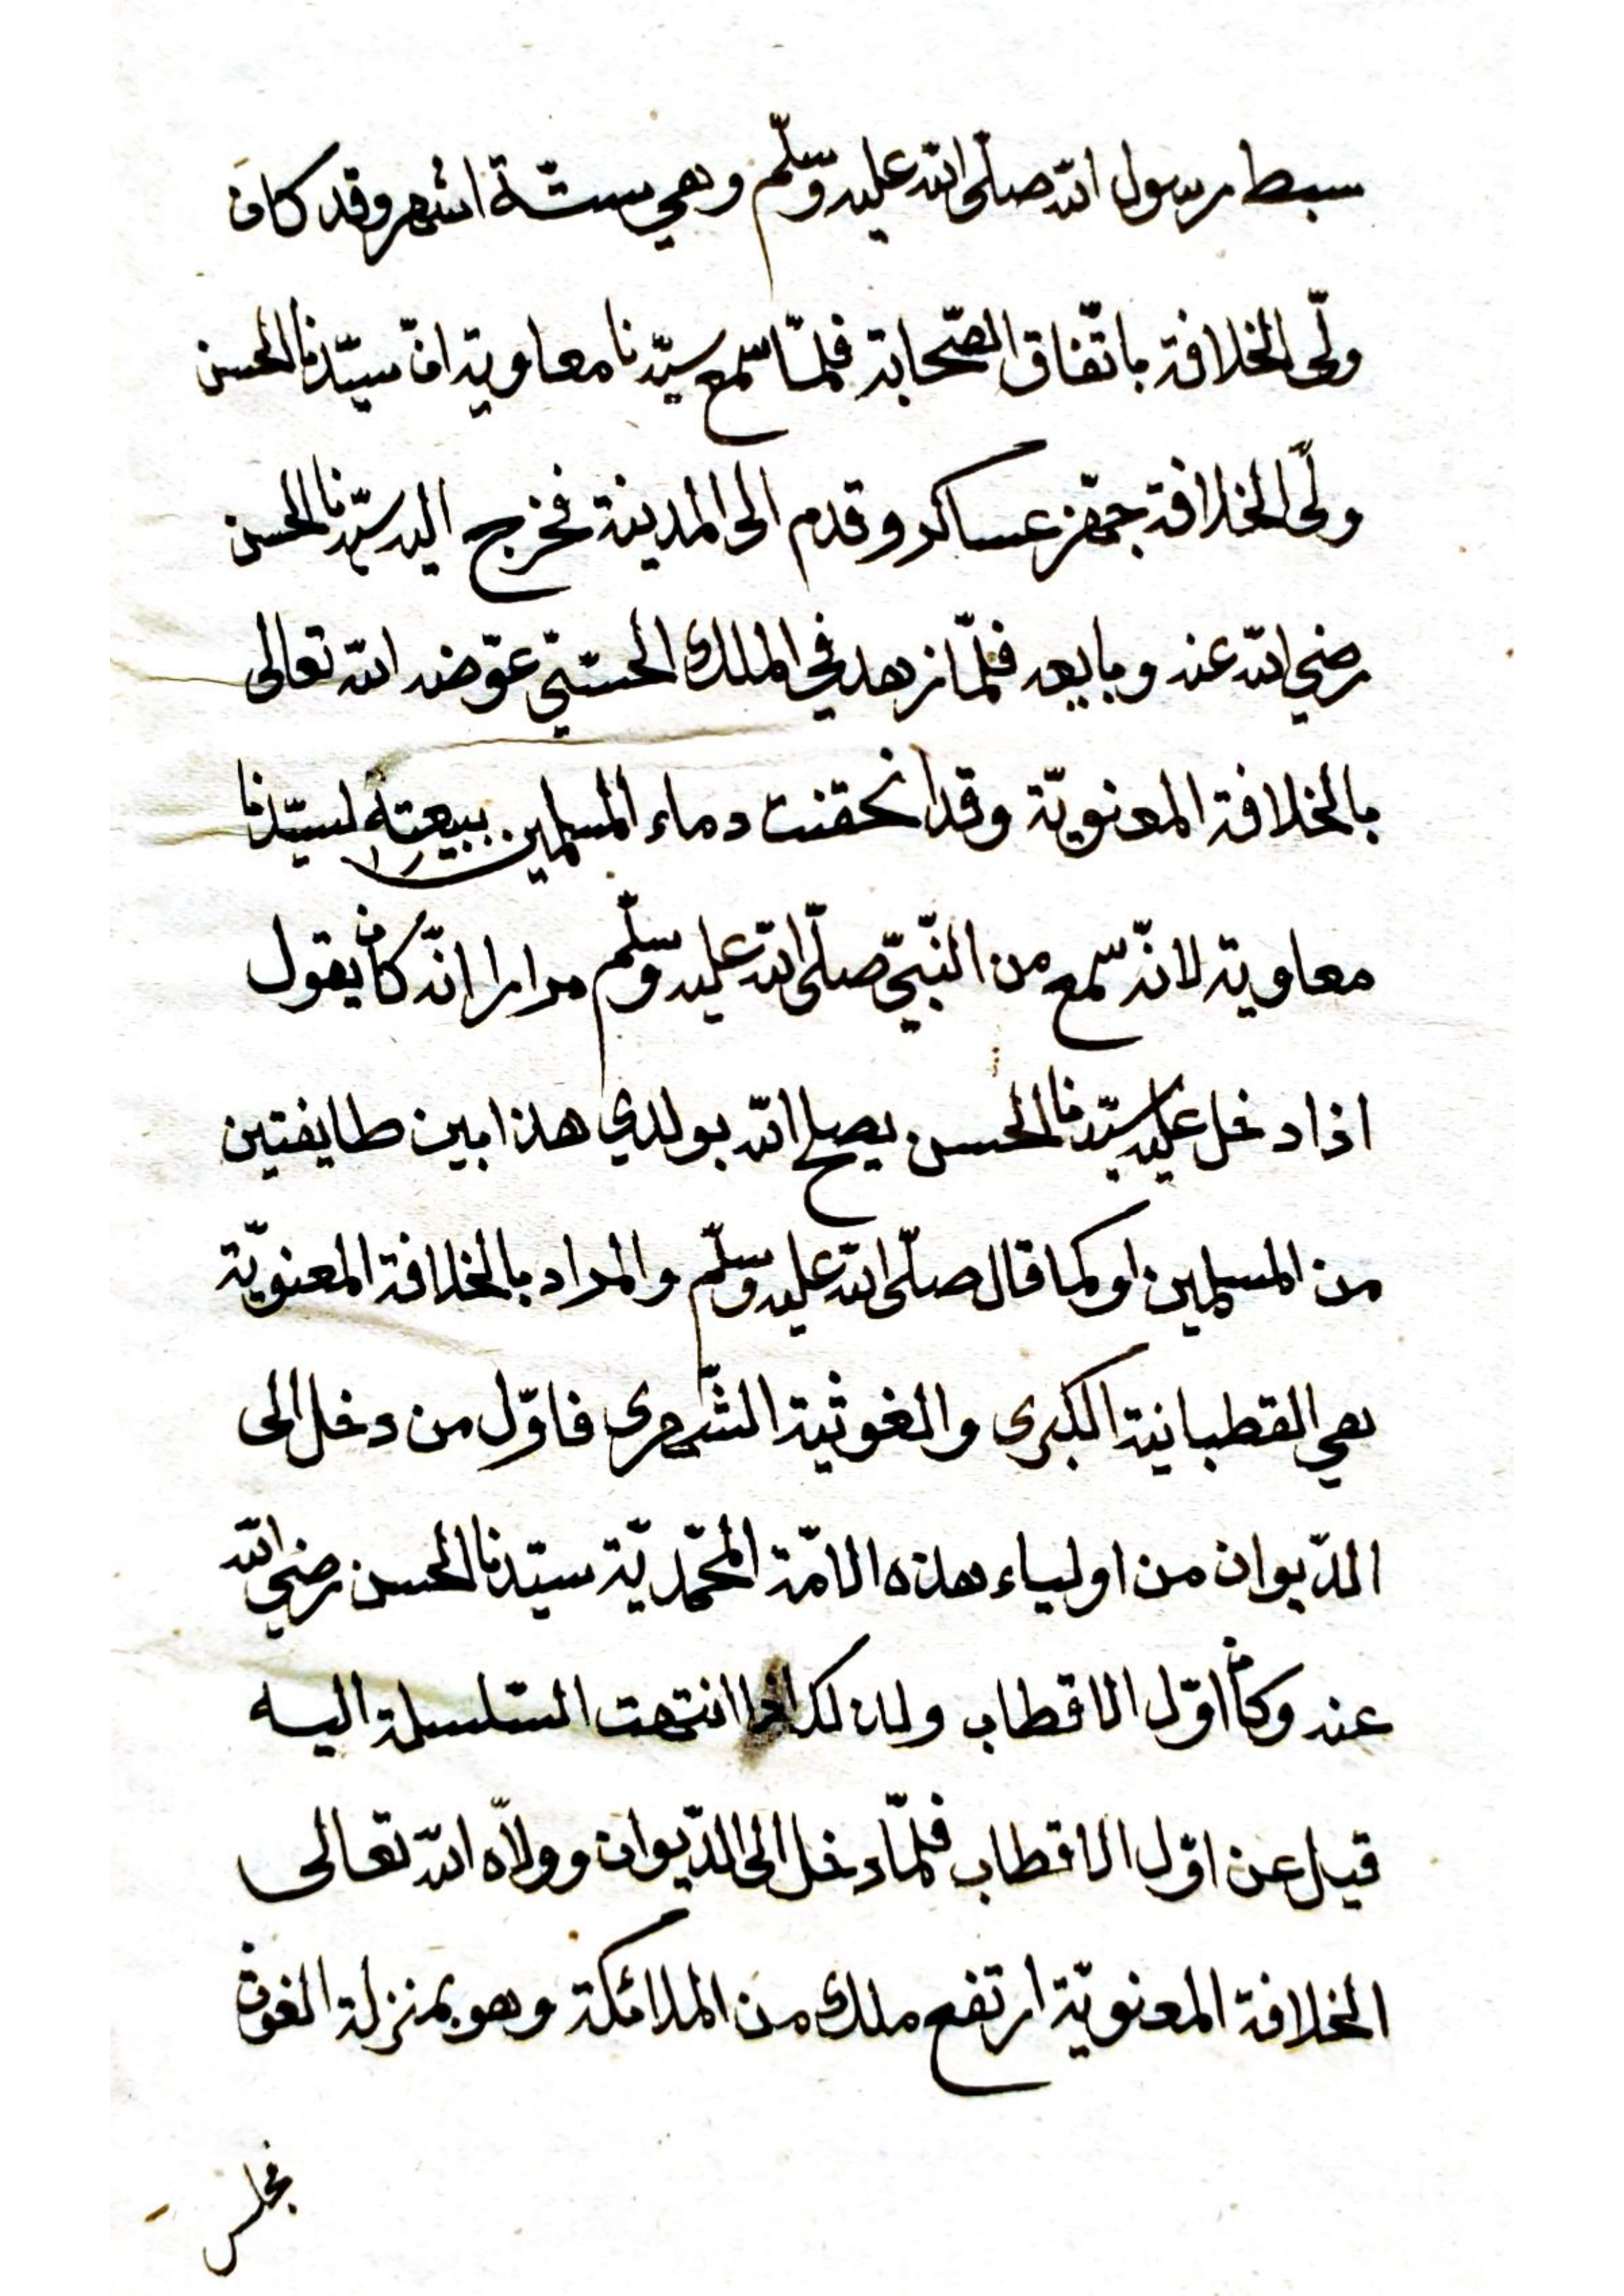 سبط رسول الله صلّى الله عليه وسلّم وهي ستّة اشهر وقد كان
ولّى الخلافة باتّفاق الصّحابة فلمّا سمع سيّدنا معاوية انّ سيّدنا الحسن
ولّى الخلافة جهّز عساكر وقدم الى المدينة فخرج اليه سيّدنا الحسن
رضي الله عنه وبايعه فلمّا زهد في الملك الحسّيّ عوّضه الله تعالى
بالخلافة المعنويّة وقد انحقنت دماء المسلمين ببيعته لسيّدنا
معاوية لانّه سمع من النّبيّ صلّى الله عليه وسلّم مرارا انّه كان يقول
اذا دخل عليه سيّدنا الحسن يصلح الله بولدي هذا بين طايفتين
من المسلمين او كما قال صلّى الله عليه وسلّم والمراد بالخلافة المعنويّة
هي القطبانية الكبرى والغوثية الشّهرى فاوّل من دخل الى
الدّيوان من اولياء هذه الامّة المحمّديّة سيّدنا الحسن رضي الله
عنه وكان اوّل الاقطاب انتهت السّلسلة اليه
قيل عن اوّل الاقطاب فلمّا دخل الى الدّيوان وولاّه الله تعالى
الخلافة المعنويّة ارتفع ملك من الملائكة وهو بمنزلة الغوث
فجلس